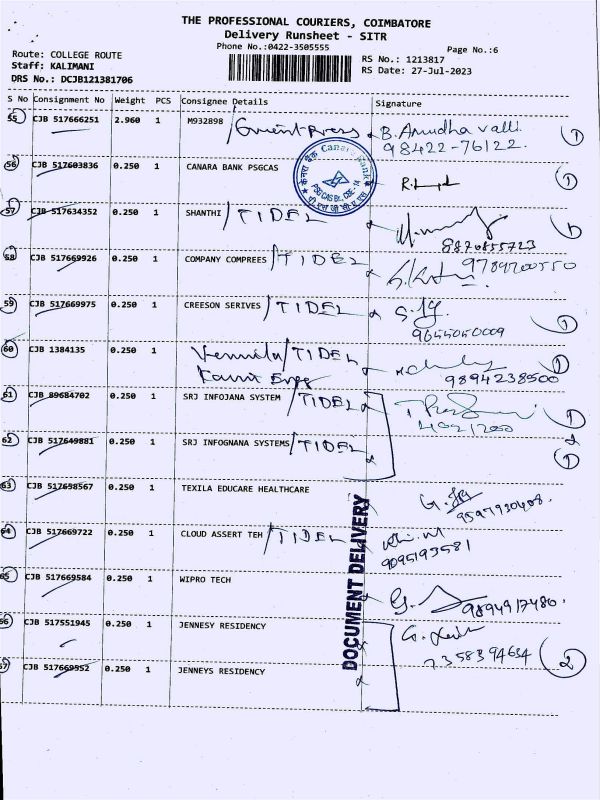 THE PROFESSIONAL COURIERS, COIMBATORE
Delivery Runsheet - SITR
Phone No.:0422-3505555
Page No.:6
Route: COLLEGE ROUTE
Staff: KALIMANI
DRS No.: DCJB121381706
RS No.: 1213817
RS Date: 27-Jul-2023
S No Consignment No Weight PCS Consignee Details Signature
55 CJB 517666251 2.960 1 M932898 / B. Anudha valli. 1
98422-76122.
56 CJB 517603836 0.250 1 CANARA BANK PSGCAS 1
Canara Bank
57 CJB 517634352 0.250 1 SHANTHI / TIDEL
8870855723
58 CJB 517669926 0.250 1 COMPANY COMPREES / TIDEL 9789700550
59 CJB 517669975 0.250 1 CREESON SERIVES / TIDEL 1
9655050009
60 CJB 1384135 0.250 1 / TIDEL 1
9894238500
61 CJB 89684702 0.250 1 SRJ INFOJANA SYSTEM / TIDEL 1
62 CJB 517649881 0.250 1 SRJ INFOGNANA SYSTEMS / TIDEL 1
63 CJB 517658567 0.250 1 TEXILA EDUCARE HEALTHCARE
9597930408.
64 CJB 517669722 0.250 1 CLOUD ASSERT TEH / TIDEL
9095193581
65 CJB 517669584 0.250 1 WIPRO TECH
9894917480.
66 CJB 517551945 0.250 1 JENNESY RESIDENCY
7358394634 2
67 CJB 517669552 0.250 1 JENNEYS RESIDENCY
DOCUMENT DELIVERY